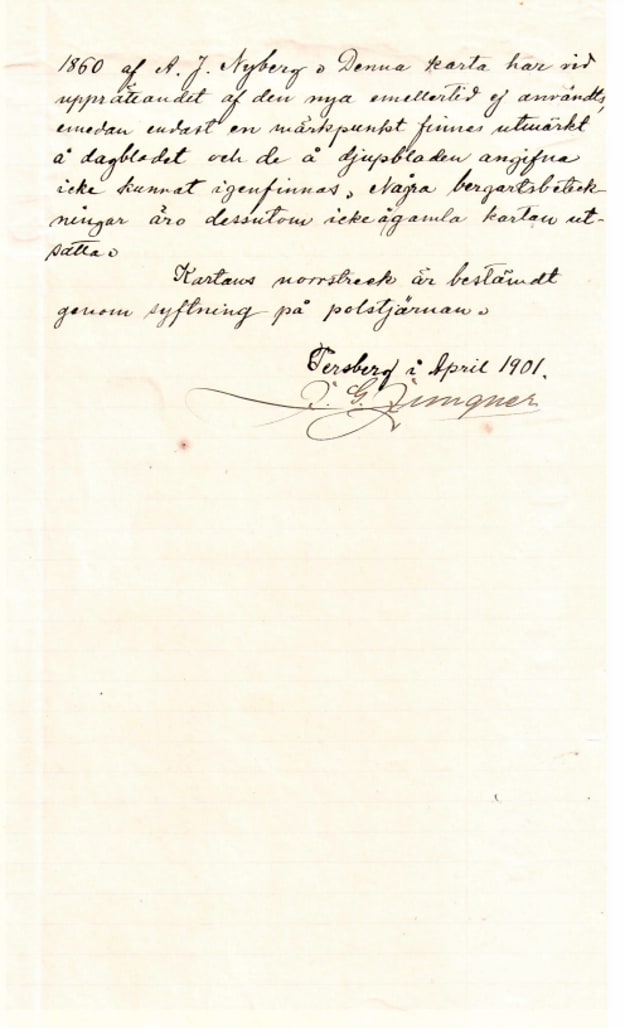 1860 af A. J. Nyberg. Denna karta har vid
upprättandet af den nya emellertid ej användts,
emedan endast en märkpunkt finnes utmärkt
å dagbladet och de å djupbladen angifna
icke kunnat igenfinnas. Några bergartsbeteck-
ningar äro dessutom icke å gamla kartan ut-
satta.
Kartans norrstreck är bestämdt
genom syftning på polstjärnan.
Persberg i April 1901.
G.